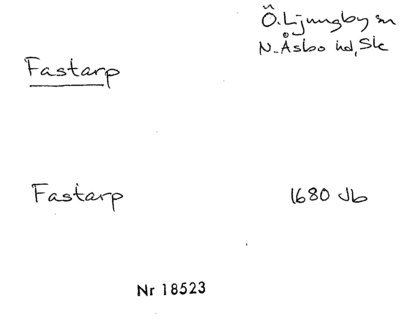 Ö. Ljungby sn
N. Åsbo hd, Sk
Fastarp
Fastarp 1680 Jb
Nr 18523